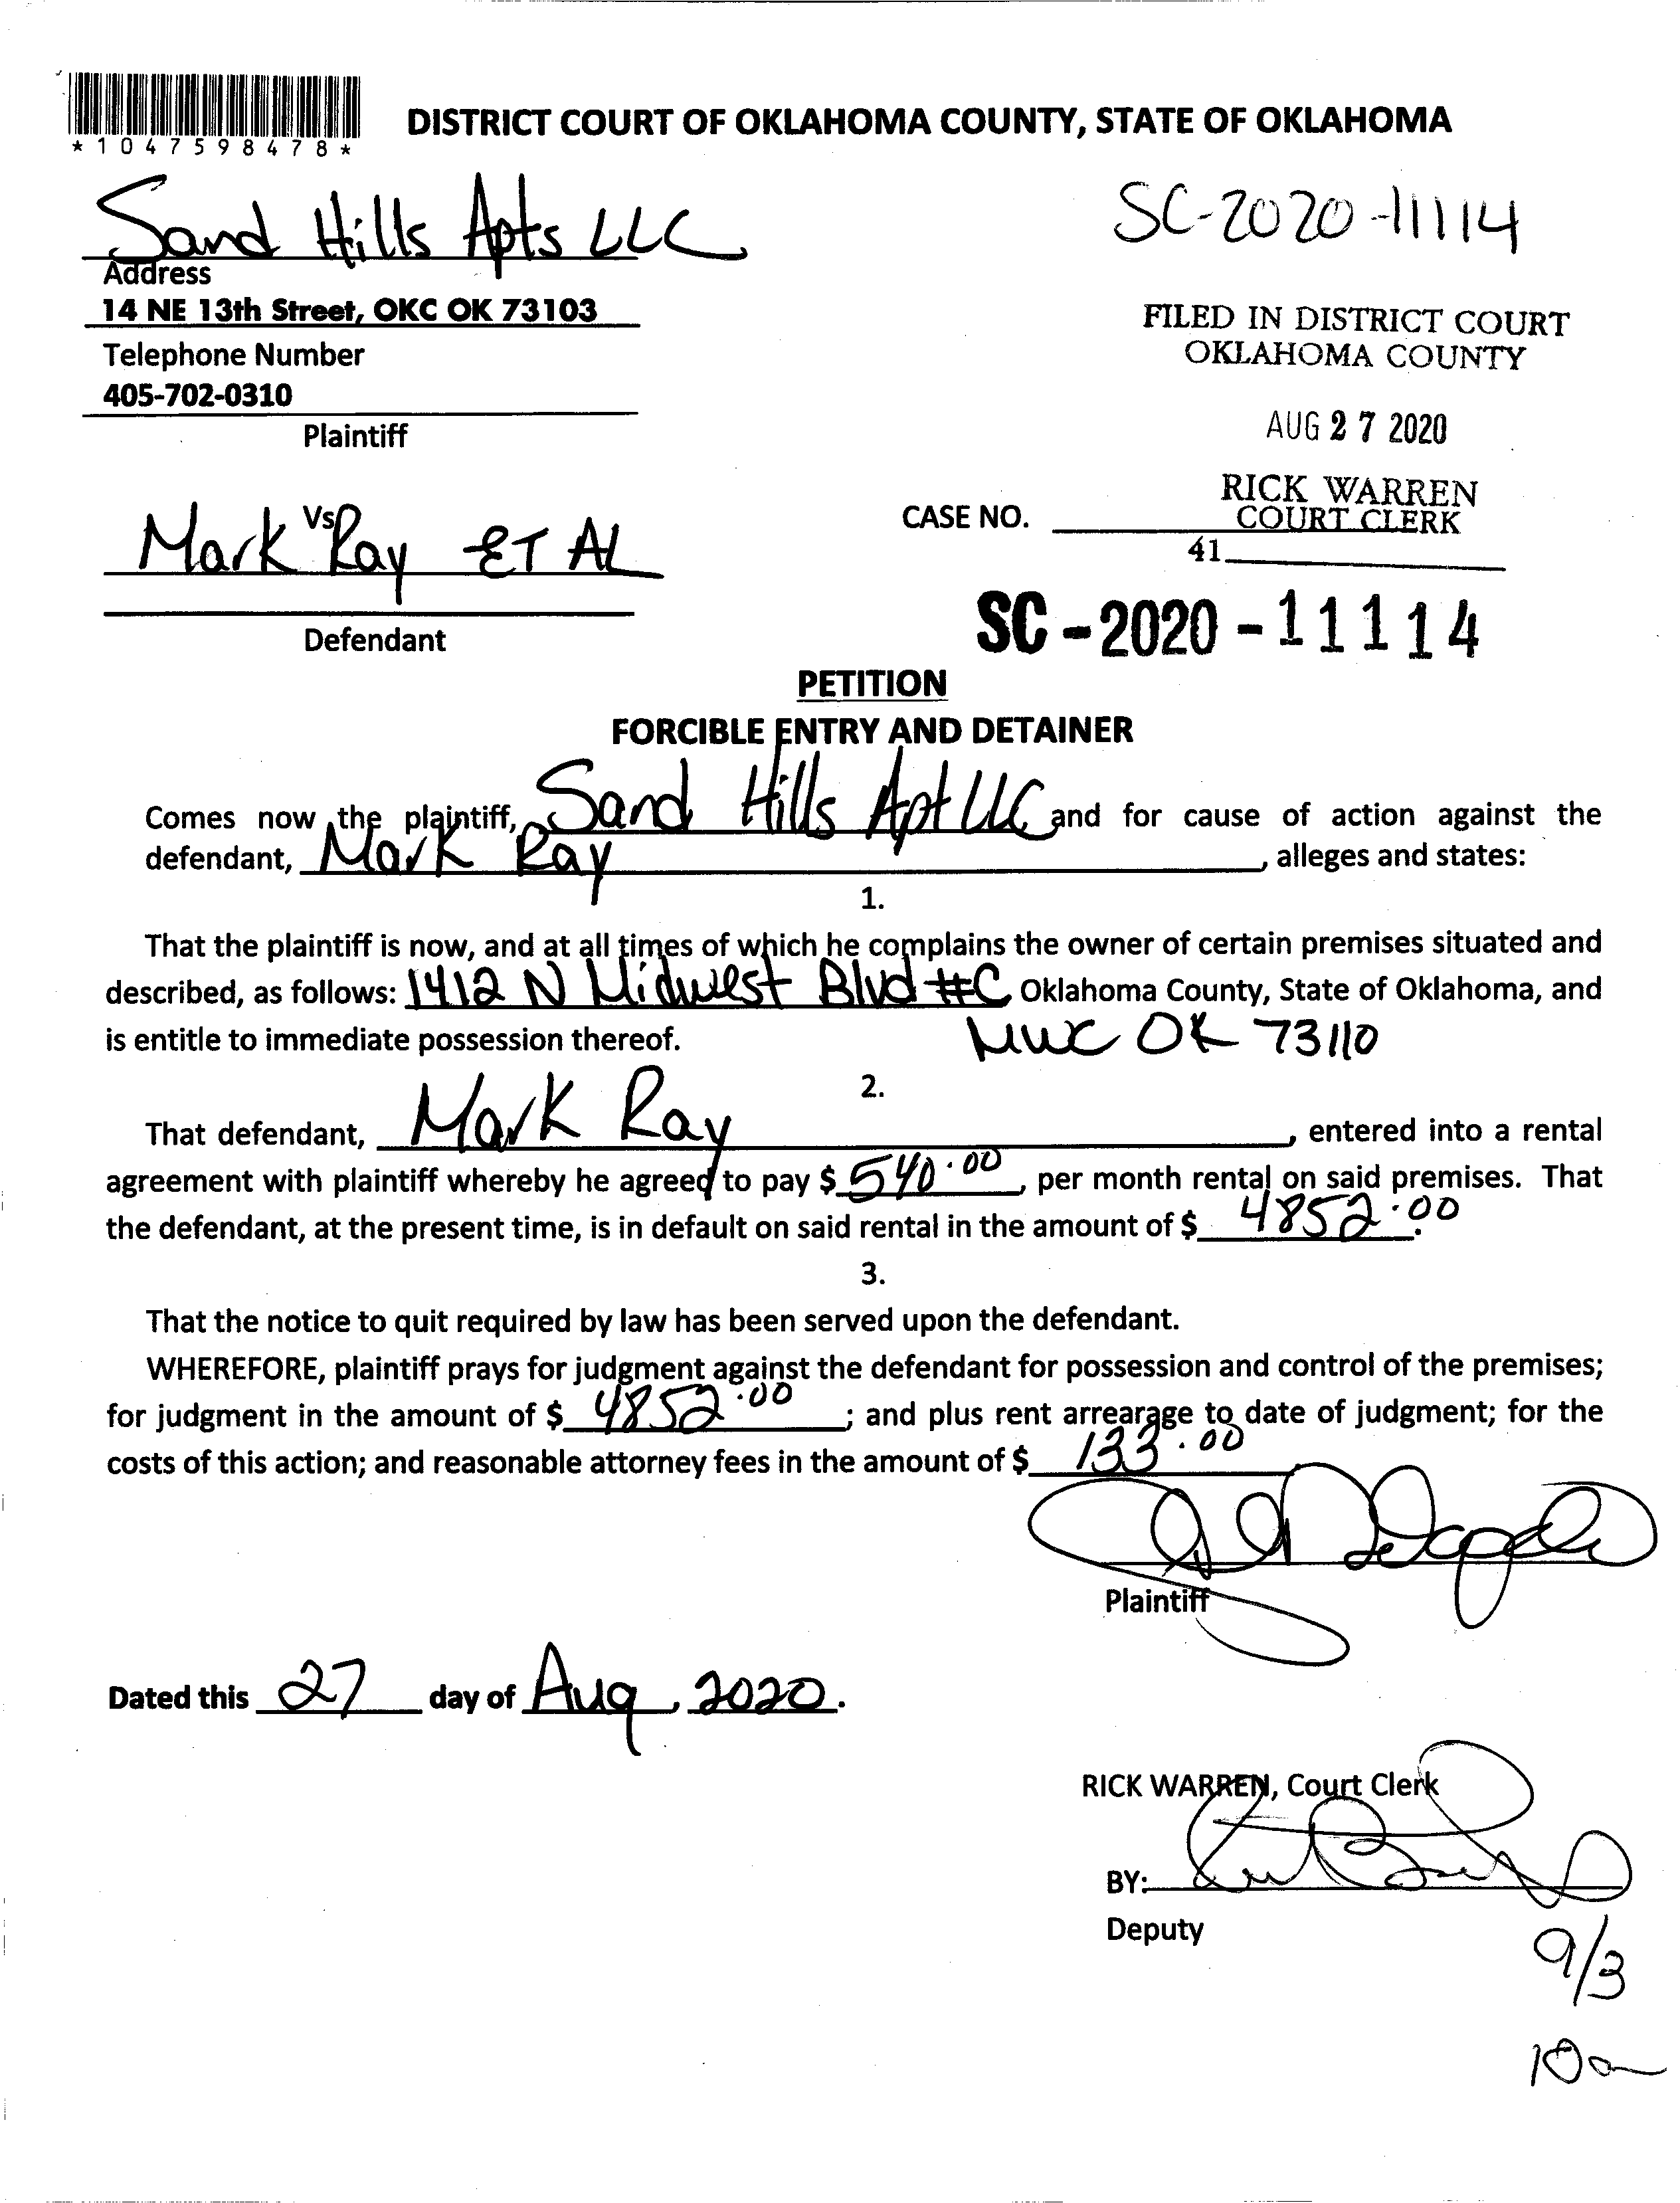 *1047598478*
DISTRICT COURT OF OKLAHOMA COUNTY, STATE OF OKLAHOMA
Sand Hills Apts LLC
SC-2020-11114
Address
14 NE 13th Street, OKC OK 73103
Telephone Number
405-702-0310
Plaintiff
FILED IN DISTRICT COURT
OKLAHOMA COUNTY
AUG 27 2020
RICK WARREN
COURT CLERK
41
Vs
Mark Ray ET AL
CASE NO.
Defendant
SC-2020-11114
PETITION
FORCIBLE ENTRY AND DETAINER
Comes now the plaintiff, Sand Hills Apt LLC and for cause of action against the
defendant, Mark Ray, alleges and states:
1.
That the plaintiff is now, and at all times of which he complains the owner of certain premises situated and
described, as follows: 1412 N Midwest Blvd #C Oklahoma County, State of Oklahoma, and
is entitle to immediate possession thereof. MWC OK 73110
2.
That defendant, Mark Ray, entered into a rental
agreement with plaintiff whereby he agreed to pay $ 540.00, per month rental on said premises. That
the defendant, at the present time, is in default on said rental in the amount of $ 4852.00.
3.
That the notice to quit required by law has been served upon the defendant.
WHEREFORE, plaintiff prays for judgment against the defendant for possession and control of the premises;
for judgment in the amount of $ 4852.00; and plus rent arrearage to date of judgment; for the
costs of this action; and reasonable attorney fees in the amount of $ 133.00
Plaintiff
Dated this 27 day of Aug, 2020.
RICK WARREN, Court Clerk
BY:
Deputy
9/3
10a